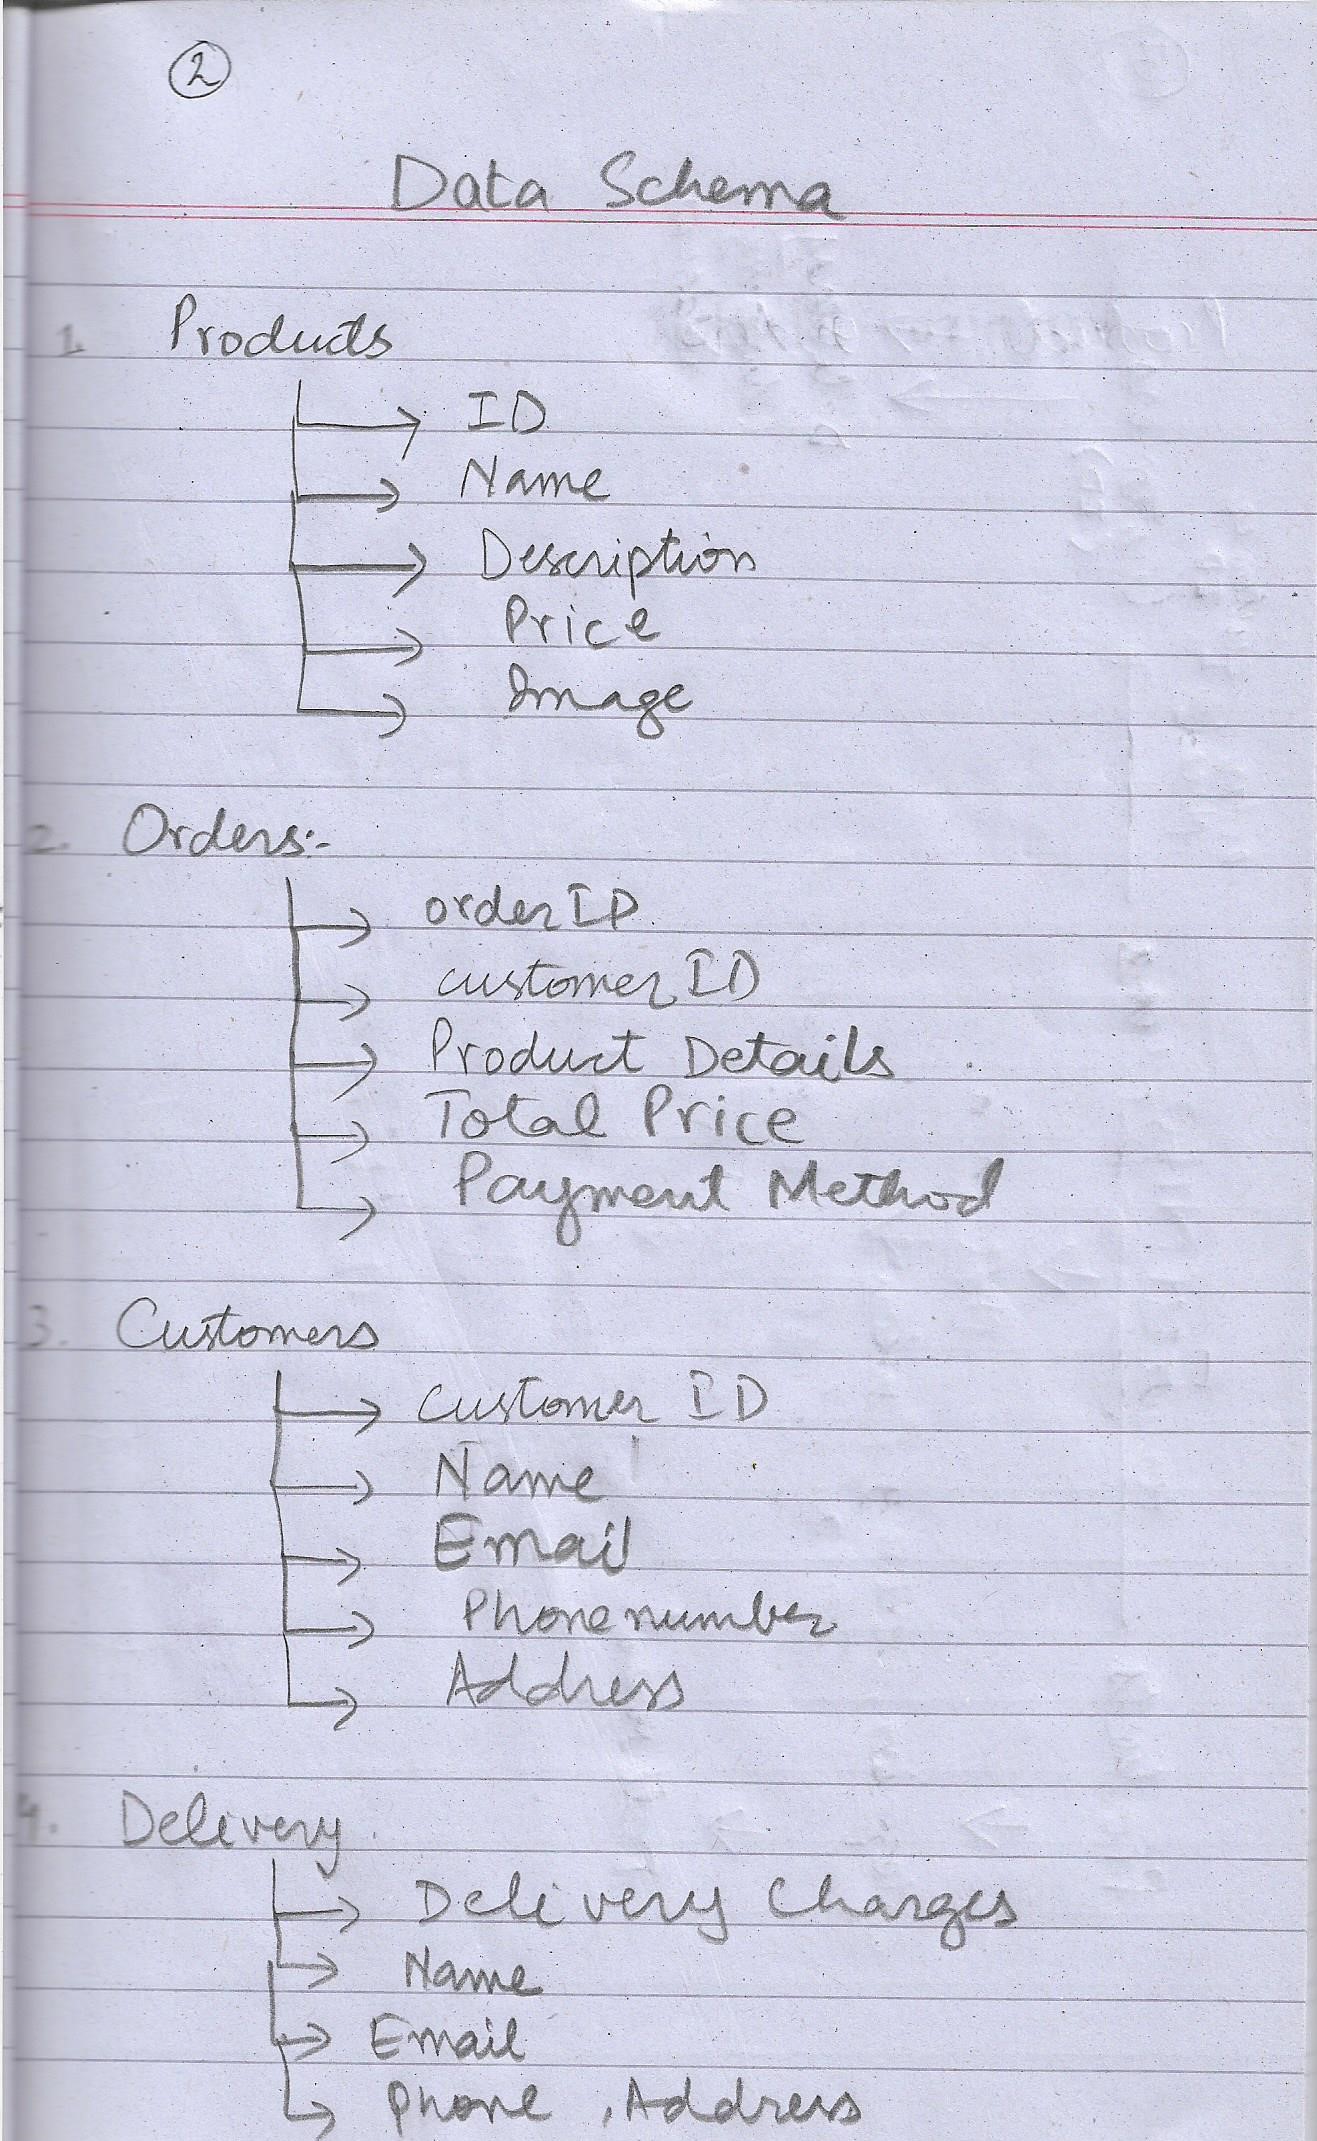 2
Data Schema
1. Products
ID
Name
Description
Price
Image
2. Orders:-
orderID
customerID
Product Details
Total Price
Payment Method
3. Customers
Customer ID
Name
Email
Phone number
Address
4. Delivery
Delivery Charges
Name
Email
Phone, Address